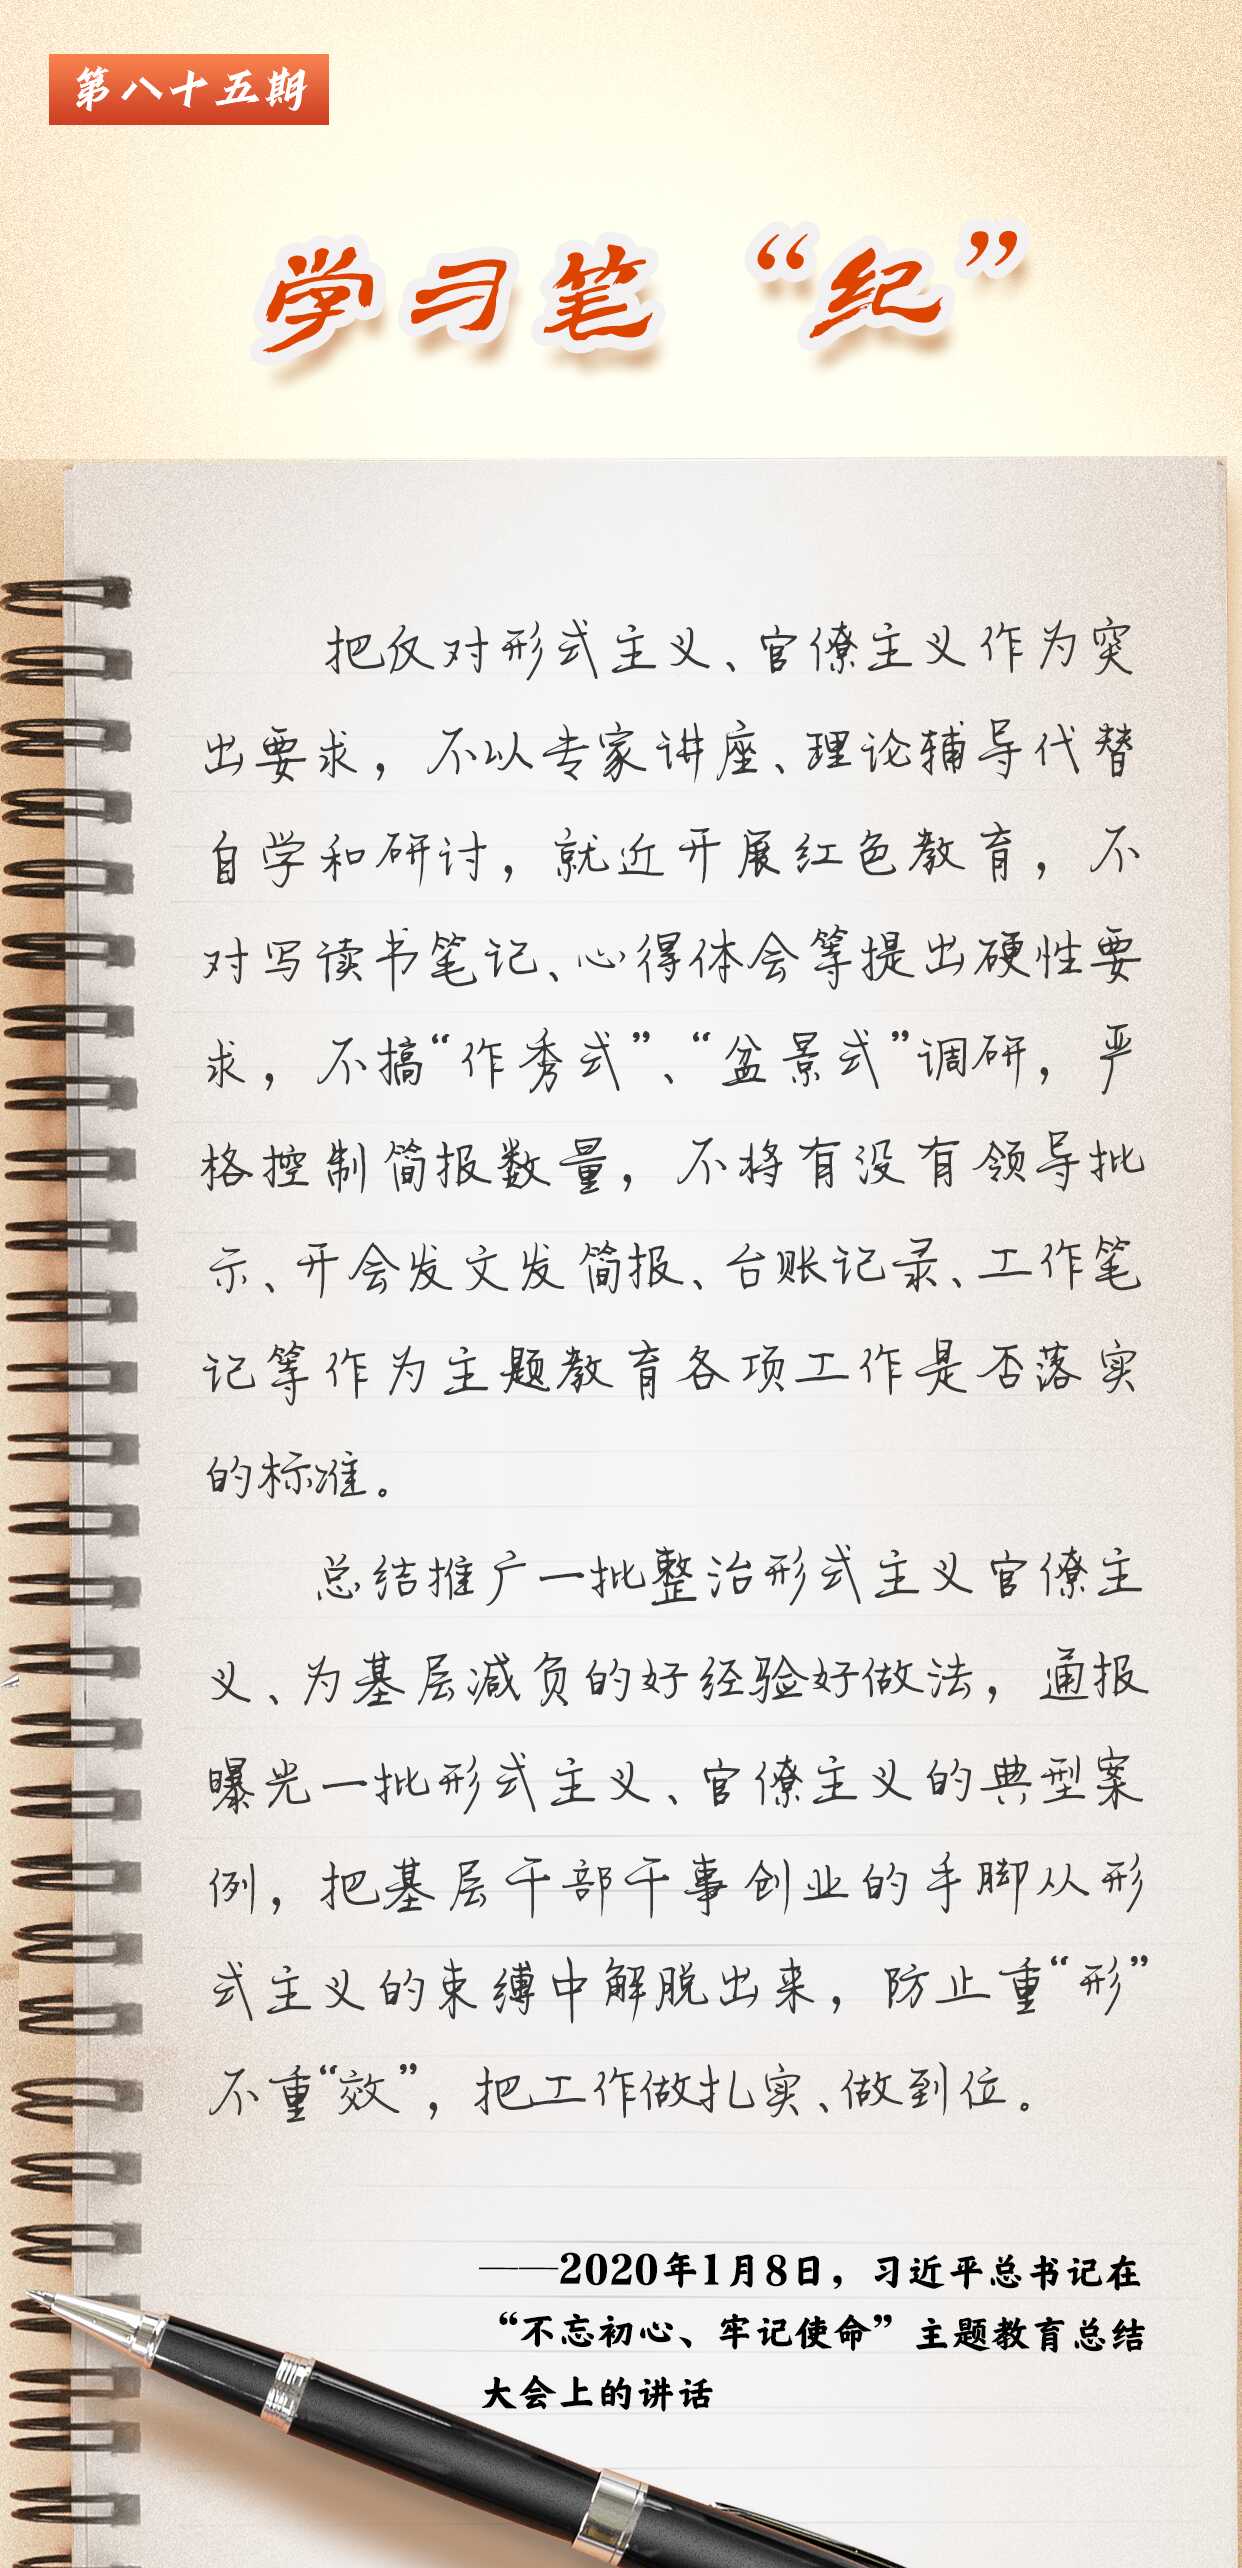 第八十五期
学习笔“纪”
把反对形式主义、官僚主义作为突
出要求，不以专家讲座、理论辅导代替
自学和研讨，就近开展红色教育，不
对写读书笔记、心得体会等提出硬性要
求，不搞“作秀式”、“盆景式”调研，严
格控制简报数量，不将有没有领导批
示、开会发文发简报、台账记录、工作笔
记等作为主题教育各项工作是否落实
的标准。
总结推广一批整治形式主义官僚主
义、为基层减负的好经验好做法，通报
曝光一批形式主义、官僚主义的典型案
例，把基层干部干事创业的手脚从形
式主义的束缚中解脱出来，防止重“形”
不重“效”，把工作做扎实、做到位。
——2020年1月8日，习近平总书记在
“不忘初心、牢记使命”主题教育总结
大会上的讲话